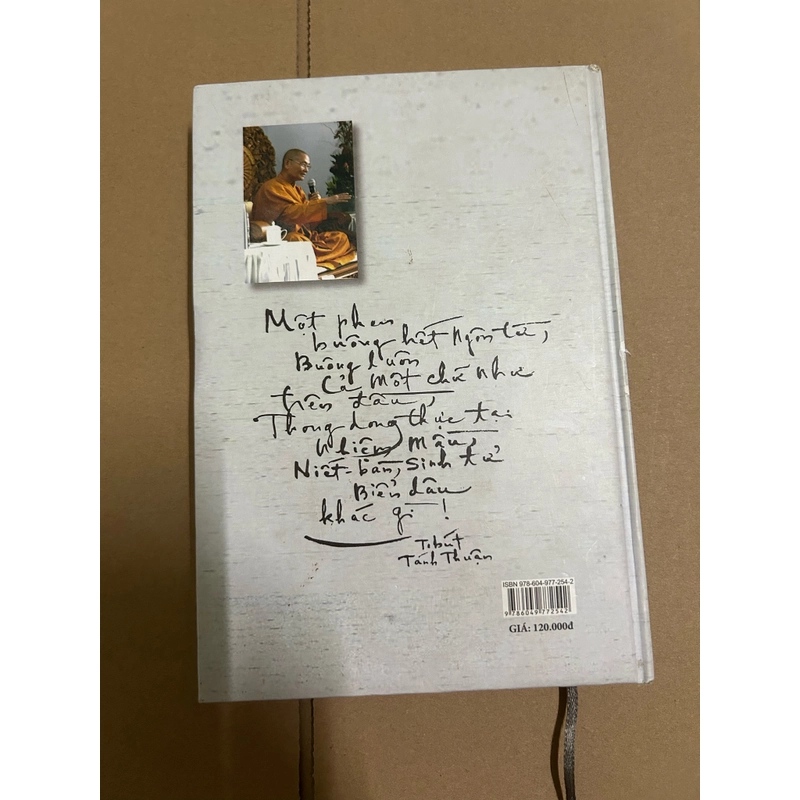 Một phen
buông hết Ngôn từ,
Buông luôn
Cả Một chữ Như
trên đầu,
Thong dong thực tại
Nhiệm Mầu,
Niết-bàn, Sinh tử
Biển dâu
khác gì!
T.bút
Tánh Thuận
ISBN 978-604-977-254-2
9 786049 772542
GIÁ: 120.000đ